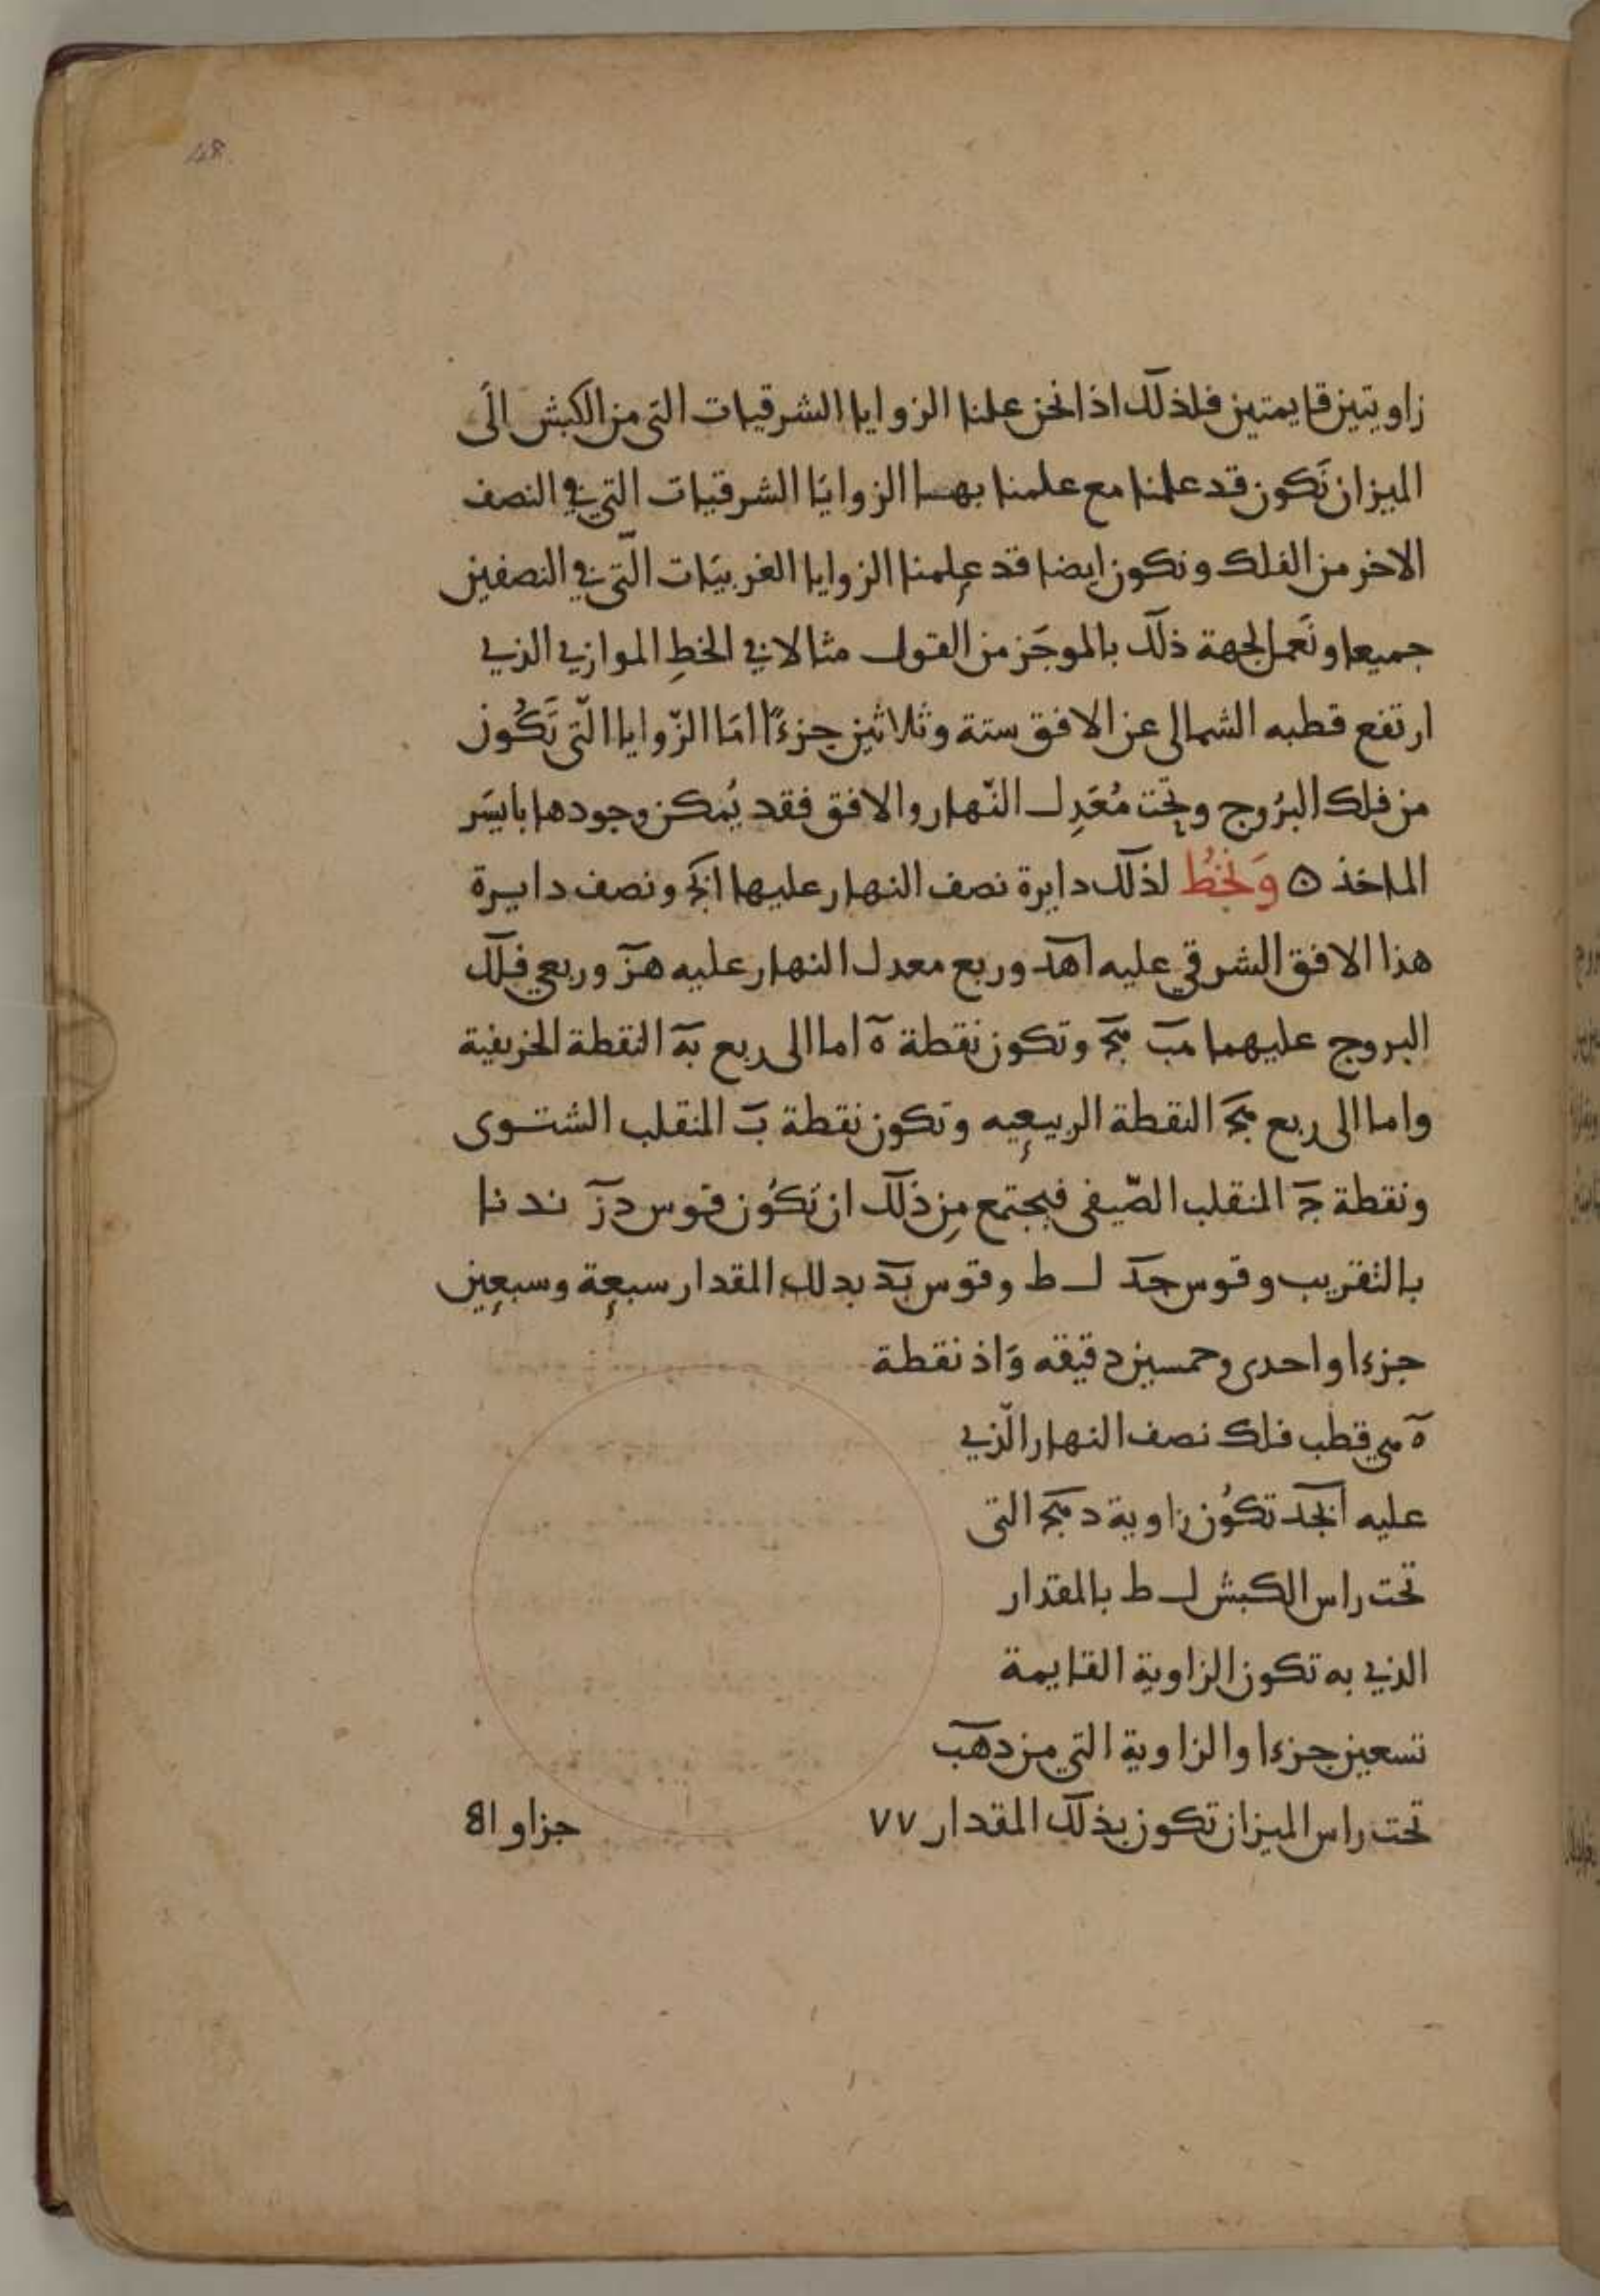 48
زاويتين قايمتين فلذلك اذا نحن علمنا الزوايا الشرقيات التي من الكبش الى
الميزان نكون قد علمنا مع علمنا بها الزوايا الشرقيات التي في النصف
الاخر من الفلك ونكون ايضا قد علمنا الزوايا الغربيات التي في النصفين
جميعا ونعمل لجهة ذلك بالموجَز من القول مثالا في الخطِ الموازي الذي
ارتفع قطبه الشمالى عن الافق ستة وثلاثين جزءًا امَا الزّوايا الّتي تَكُون
من فلك البرُوج وتحت مُعَدِل النّهار والافق فقد يُمكن وجودها بايسَر
الماخذ ه وَنخُط لذلك دايرة نصف النهار عليها ابجد ونصف دايرة
هذا الافق الشرقي عليه اهد وربع معدل النهار عليه هز وربعي فلك
البروج عليهما هب هج وتكون نقطة ه اما الى ربع به النقطة الخريفية
واما الى ربع هج النقطة الربيعيه وتكون نقطة ب المنقلب الشتوى
ونقطة ج المنقلب الصّيفى فيجتمع مِن ذلك ان تكُون قوس دز ند نا
بالتقريب وقوس جد ل ط وقوس بد بدلك المقدار سبعة وسبعين
جزءا واحدى وخمسين دقيقه وَاذ نقطة
ه هي قطب فلك نصف النهار الّذي
عليه ابجد تكُون زاوية د هج التى
تحت راس الكبش ل ط بالمقدار
الذي به تكون الزاوية القايمة
تسعين جزءا والزاوية التي من دهب
تحت راس الميزان تكون بذلك المقدار ٧٧ جزا و